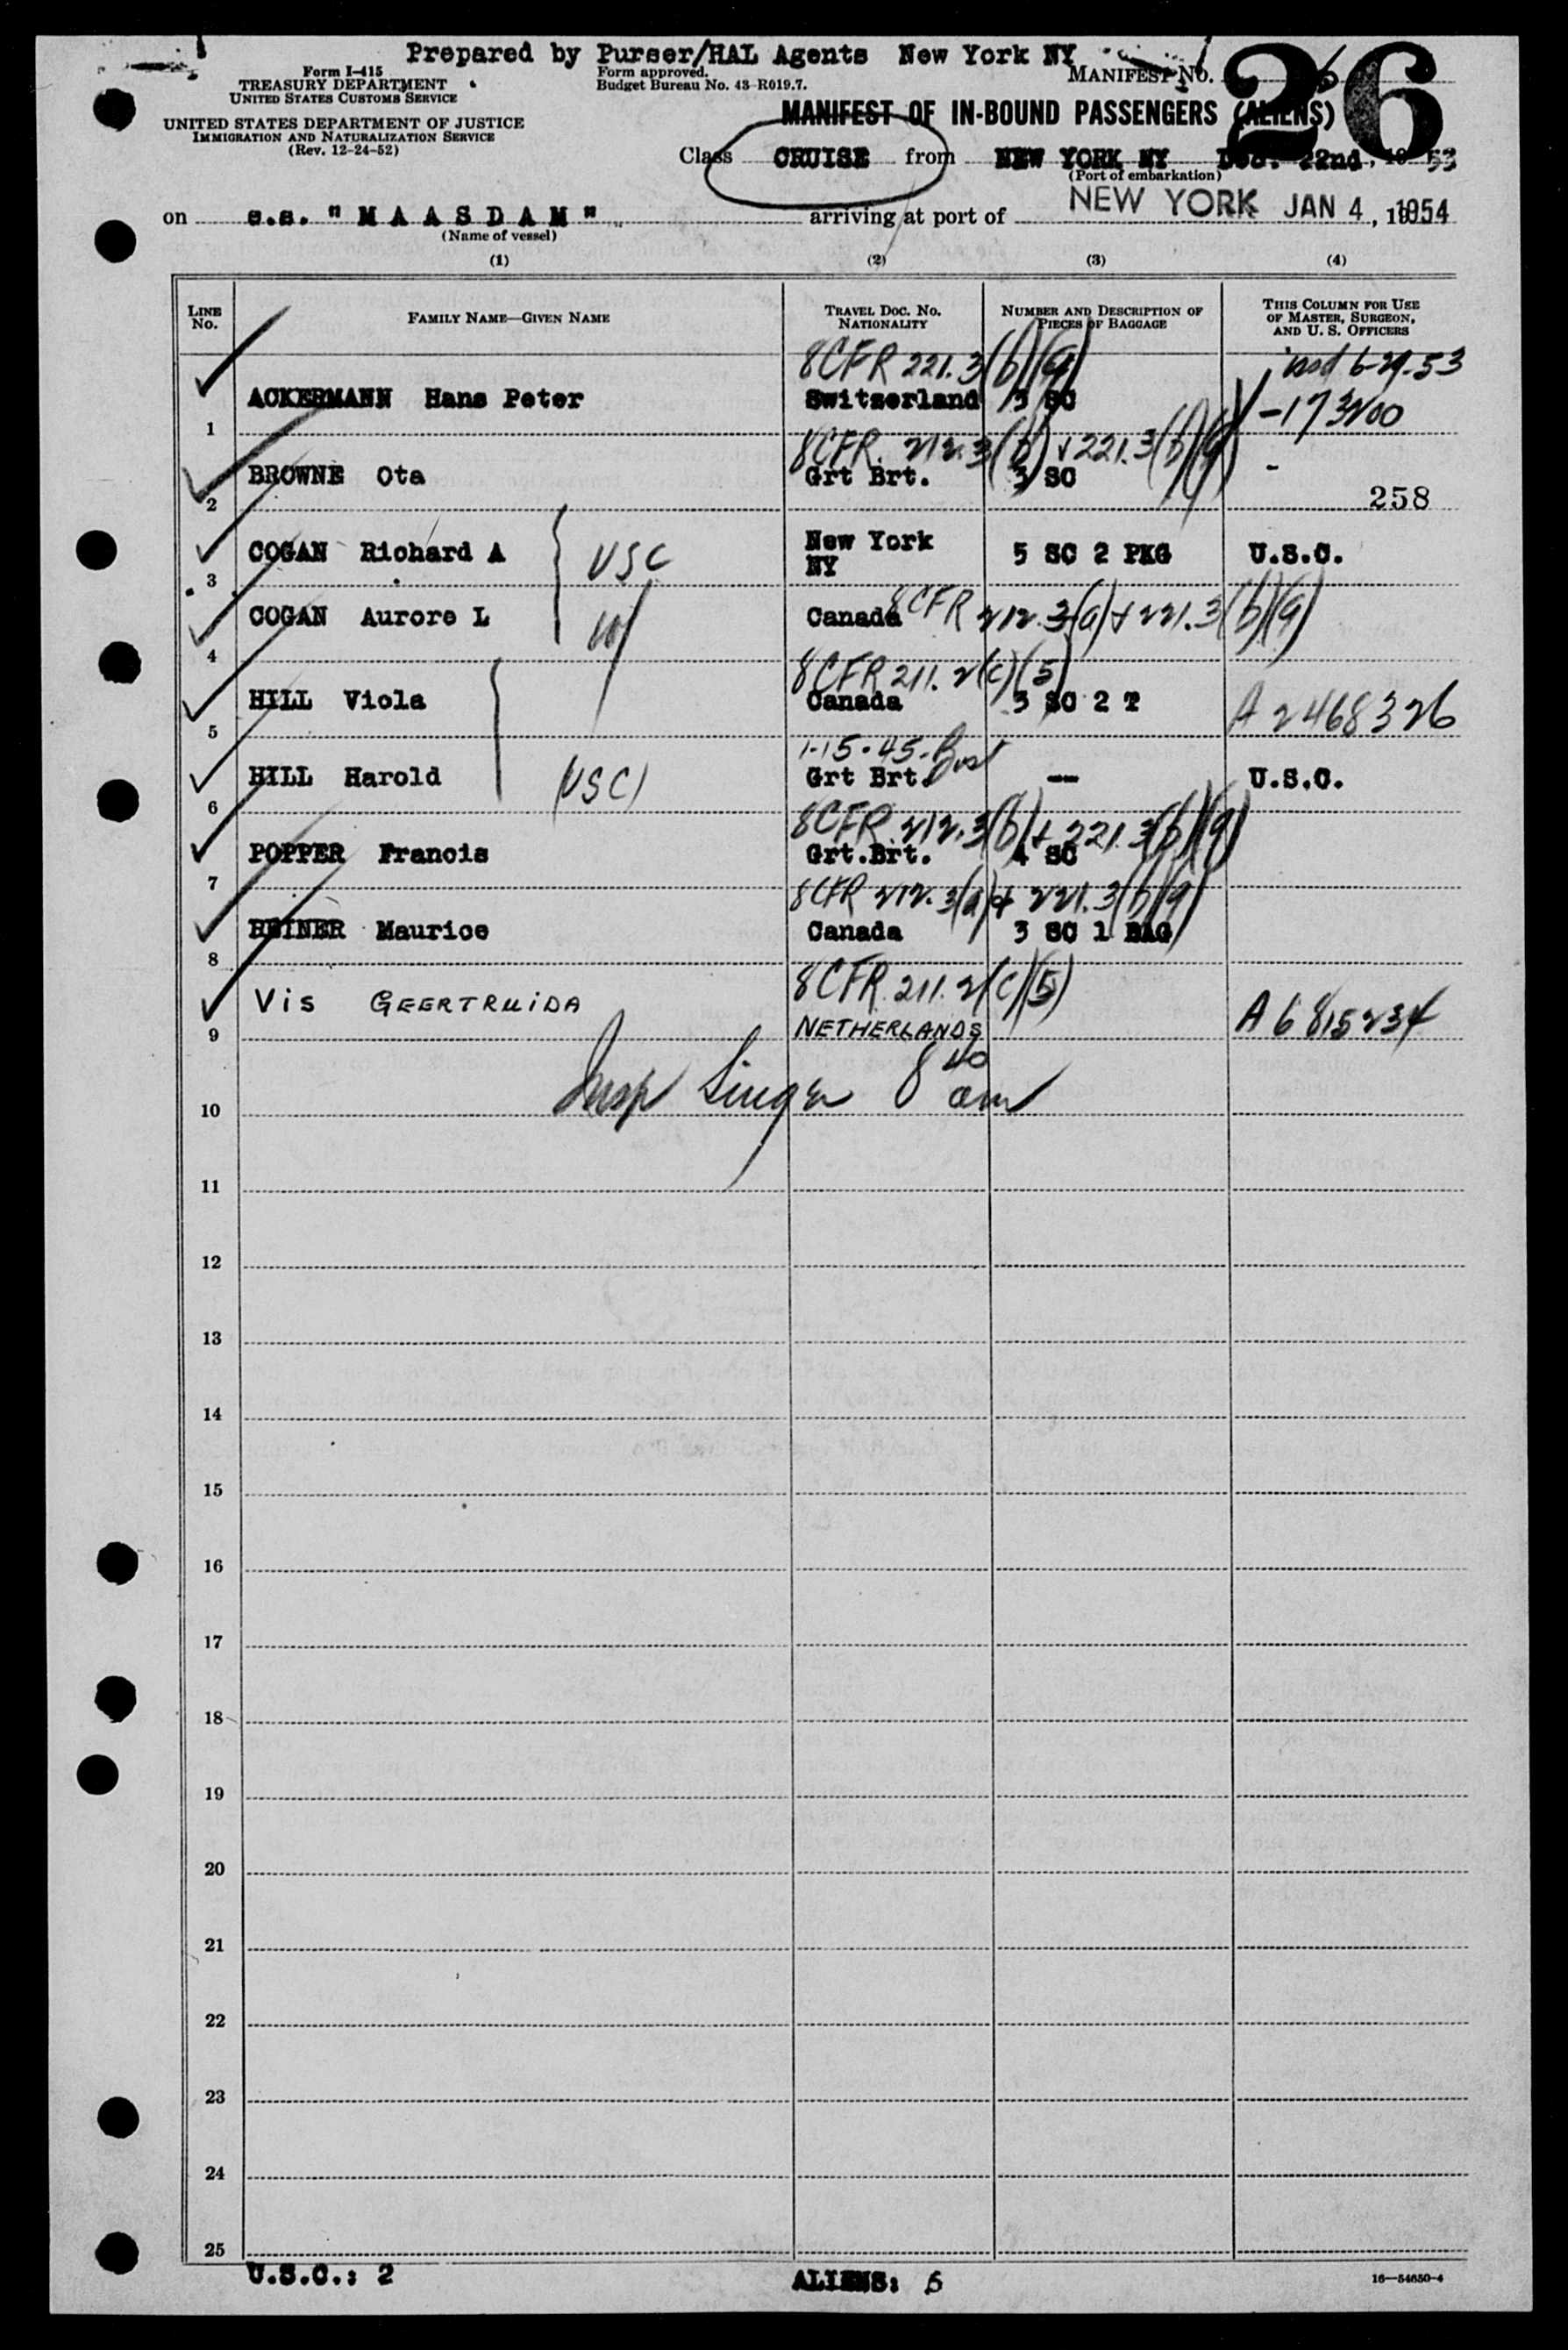 Prepared by Purser/HAL Agents New York NY
Form I-415
TREASURY DEPARTMENT
UNITED STATES CUSTOMS SERVICE
UNITED STATES DEPARTMENT OF JUSTICE
IMMIGRATION AND NATURALIZATION SERVICE
(Rev. 12-24-52)
Form approved.
Budget Bureau No. 43-R019.7.
MANIFEST No. 26
MANIFEST OF IN-BOUND PASSENGERS (ALIENS)
Class CRUISE from NEW YORK NY Dec. 22nd, 19 53
(Port of embarkation)
on s.s. "MAASDAM" arriving at port of NEW YORK JAN 4, 1954
(Name of vessel)
(1) (2) (3) (4)
LINE No. FAMILY NAME—GIVEN NAME TRAVEL DOC. No. NATIONALITY NUMBER AND DESCRIPTION OF PIECES OF BAGGAGE THIS COLUMN FOR USE OF MASTER, SURGEON, AND U. S. OFFICERS
8CFR 221.3(b)(9) 6-29-53
1 ACKERMANN Hans Peter Switzerland 3 SC
8CFR. 212.3(b) + 221.3(b)(9)
2 BROWNE Ota Grt Brt. 3 SC - 258
3 COGAN Richard A USC New York NY 5 SC 2 PKG U.S.C.
4 COGAN Aurore L Canada 8CFR 212.3(a) + 221.3(b)(9)
8CFR 211.2(c)(5)
5 HILL Viola Canada 3 SC 2 T A 2468326
1-15-45
6 HILL Harold (USC) Grt Brt. -- U.S.C.
8CFR 212.3(b) + 221.3(b)(9)
7 POPPER Francis Grt.Brt. 4 SC
8CFR 212.3(a) + 221.3(b)(9)
8 REINER Maurice Canada 3 SC 1 BAG
8CFR 211.2(c)(5)
9 Vis GEERTRUIDA NETHERLANDS A6815234
Insp Singer 8 40 am
10
11
12
13
14
15
16
17
18
19
20
21
22
23
24
25
U.S.C.: 2 ALIENS: 6
16—54650-4